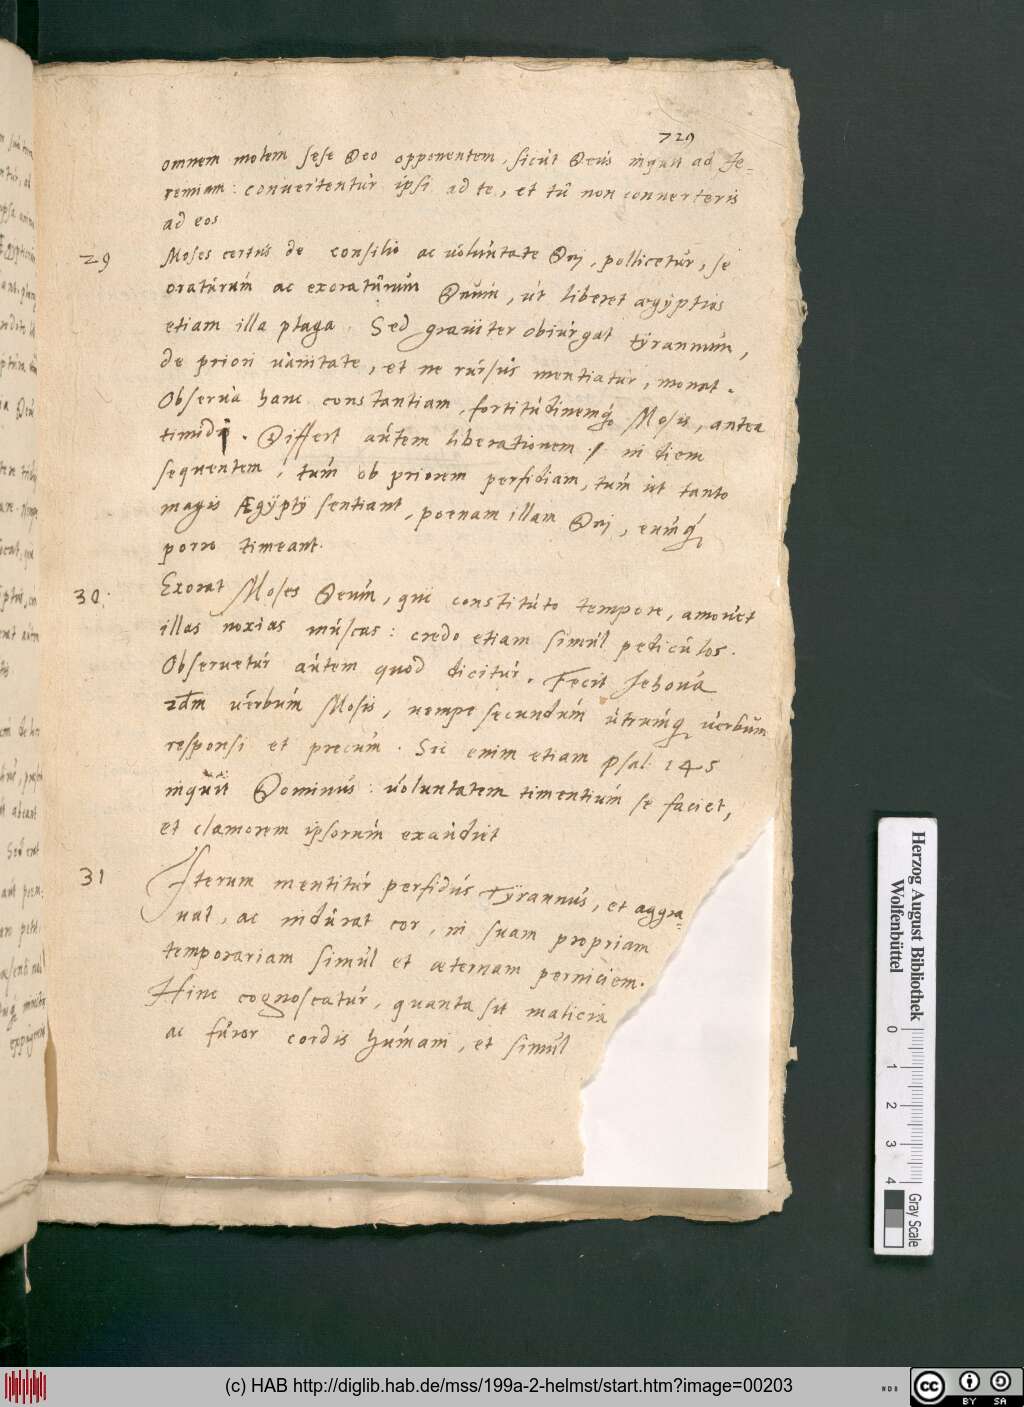 729
omnem molem sese Deo opponentem, sicut Deus inquit ad Je=
remiam: convertentur ipsi ad te, et tu non converteris
ad eos
29 Moses certus de consilio ac voluntate Dnj, pollicetur, se
oraturum ac exoraturum Dnum, ut liberet ægyptios
etiam illa plaga. Sed graviter obiurgat tyrannum,
de priori vanitate, et ne rursus mentiatur, monet.
Observa hanc constantiam, fortitudinemq Mosis, antea
timidi. Differt autem liberationem in diem
sequentem, tum ob priorem perfidiam, tum ut tanto
magis Ægyptij sentiant, poenam illam Dnj, eumq
porro timeant.
30. Exorat Moses Deum, qui constituto tempore, amovet
illas noxias muscas: credo etiam simul pediculos.
Observetur autem quod dicitur. Fecit Jehova
2dm verbum Mosis, nempe secundum utrumq verbum
responsi et precum. Sic enim etiam psal: 145
inquit Dominus: voluntatem timentium se faciet,
et clamorem ipsorum exaudiet
31 Iterum mentitur perfidus Tyrannus, et aggra=
vat, ac indurat cor, in suam propriam
temporariam simul et æternam perniciem.
Hinc cognoscatur, quanta sit malicia
ac furor cordis humani, et simul
Herzog August Bibliothek
Wolfenbüttel
0 1 2 3 4
Gray Scale
(c) HAB http://diglib.hab.de/mss/199a-2-helmst/start.htm?image=00203
cc BY SA